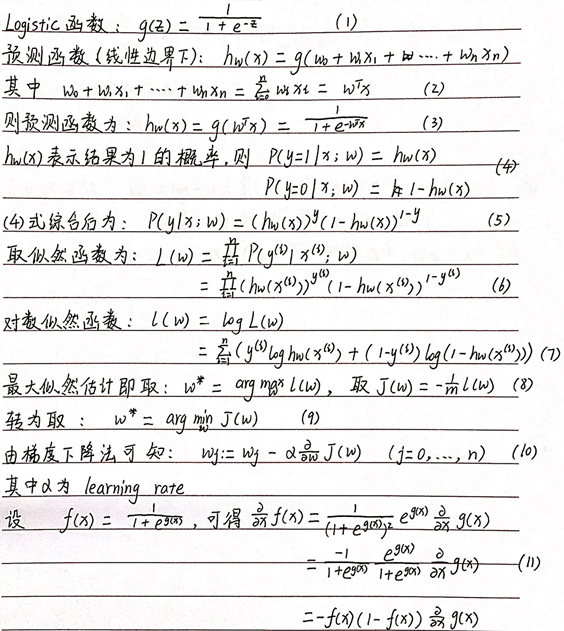 Logistic 函数: g(z) = 1/(1 + e^{-z}) (1)
预测函数(线性边界下): h_w(x) = g(w_0 + w_1x_1 + ···· + w_nx_n)
其中 w_0 + w_1x_1 + ···· + w_nx_n = ∑_{i=0}^{n} w_ix_i = w^Tx (2)
则预测函数为: h_w(x) = g(w^Tx) = 1/(1 + e^{-w^Tx}) (3)
h_w(x)表示结果为1的概率,则 P(y=1|x; w) = h_w(x)
(4)
P(y=0|x; w) = 1-h_w(x)
(4)式综合后为: P(y|x; w) = (h_w(x))^y(1-h_w(x))^{1-y} (5)
取似然函数为: L(w) = ∏_{i=1}^{m} P(y^{(i)}|x^{(i)}; w)
= ∏_{i=1}^{m} (h_w(x^{(i)}))^{y^{(i)}}(1-h_w(x^{(i)}))^{1-y^{(i)}} (6)
对数似然函数: l(w) = log L(w)
= ∑_{i=1}^{m} (y^{(i)}log h_w(x^{(i)}) + (1-y^{(i)})log(1-h_w(x^{(i)}))) (7)
最大似然估计即取: w* = arg max_w l(w), 取 J(w) = -1/m l(w) (8)
转为取: w* = arg min_w J(w) (9)
由梯度下降法可知: w_j := w_j - α ∂/∂w J(w) (j=0,...,n) (10)
其中α为 learning rate
设 f(x) = 1/(1 + e^{g(x)}), 可得 ∂/∂x f(x) = 1/(1+e^{g(x)})^2 e^{g(x)} ∂/∂x g(x)
= -1/(1+e^{g(x)}) e^{g(x)}/(1+e^{g(x)}) ∂/∂x g(x) (11)
= -f(x)(1-f(x)) ∂/∂x g(x)